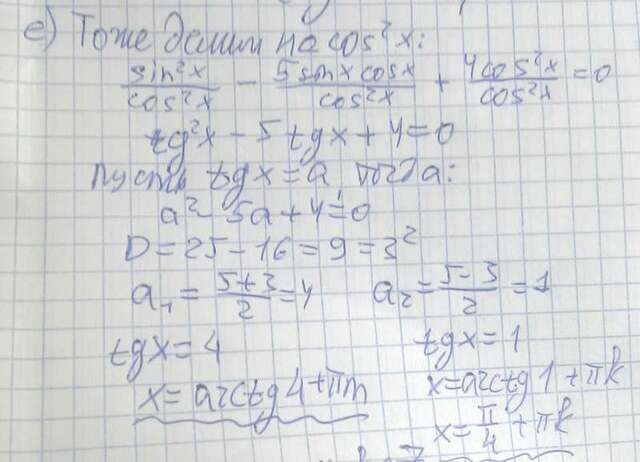 е) Тоже делим на cos²x:
sin²x/cos²x − 5sinxcosx/cos²x + 4cos²x/cos²x = 0
tg²x − 5tgx + 4 = 0
Пусть tgx = a, тогда:
a² − 5a + 4 = 0
D = 25 − 16 = 9 = 3²
a₁ = (5+3)/2 = 4 a₂ = (5−3)/2 = 1
tgx = 4 tgx = 1
x = arctg4 + πm x = arctg1 + πk
x = π/4 + πk